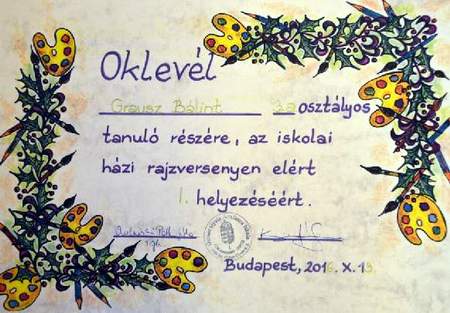 Oklevél
Grausz Bálint 3.a osztályos
tanuló részére, az iskolai
házi rajzversenyen elért
1. helyezéséért.
Budapest, 2016. X. 13.